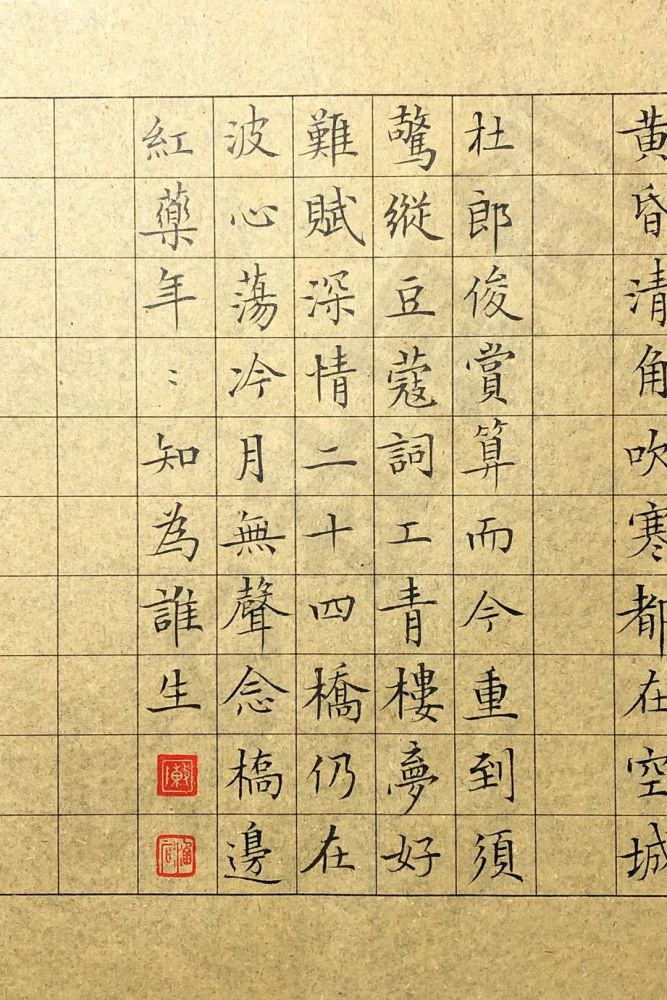 黄昏清角吹寒都在空城
杜郎俊賞算而今重到須
驚縱豆蔻詞工青樓夢好
難賦深情二十四橋仍在
波心蕩冷月無聲念橋邊
紅藥年：知為誰生